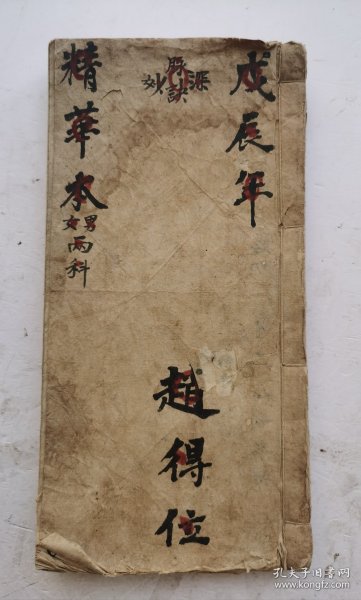 戊辰年
深
脉
訣
妙
精華本
男女兩科
趙得位
孔夫子旧书网